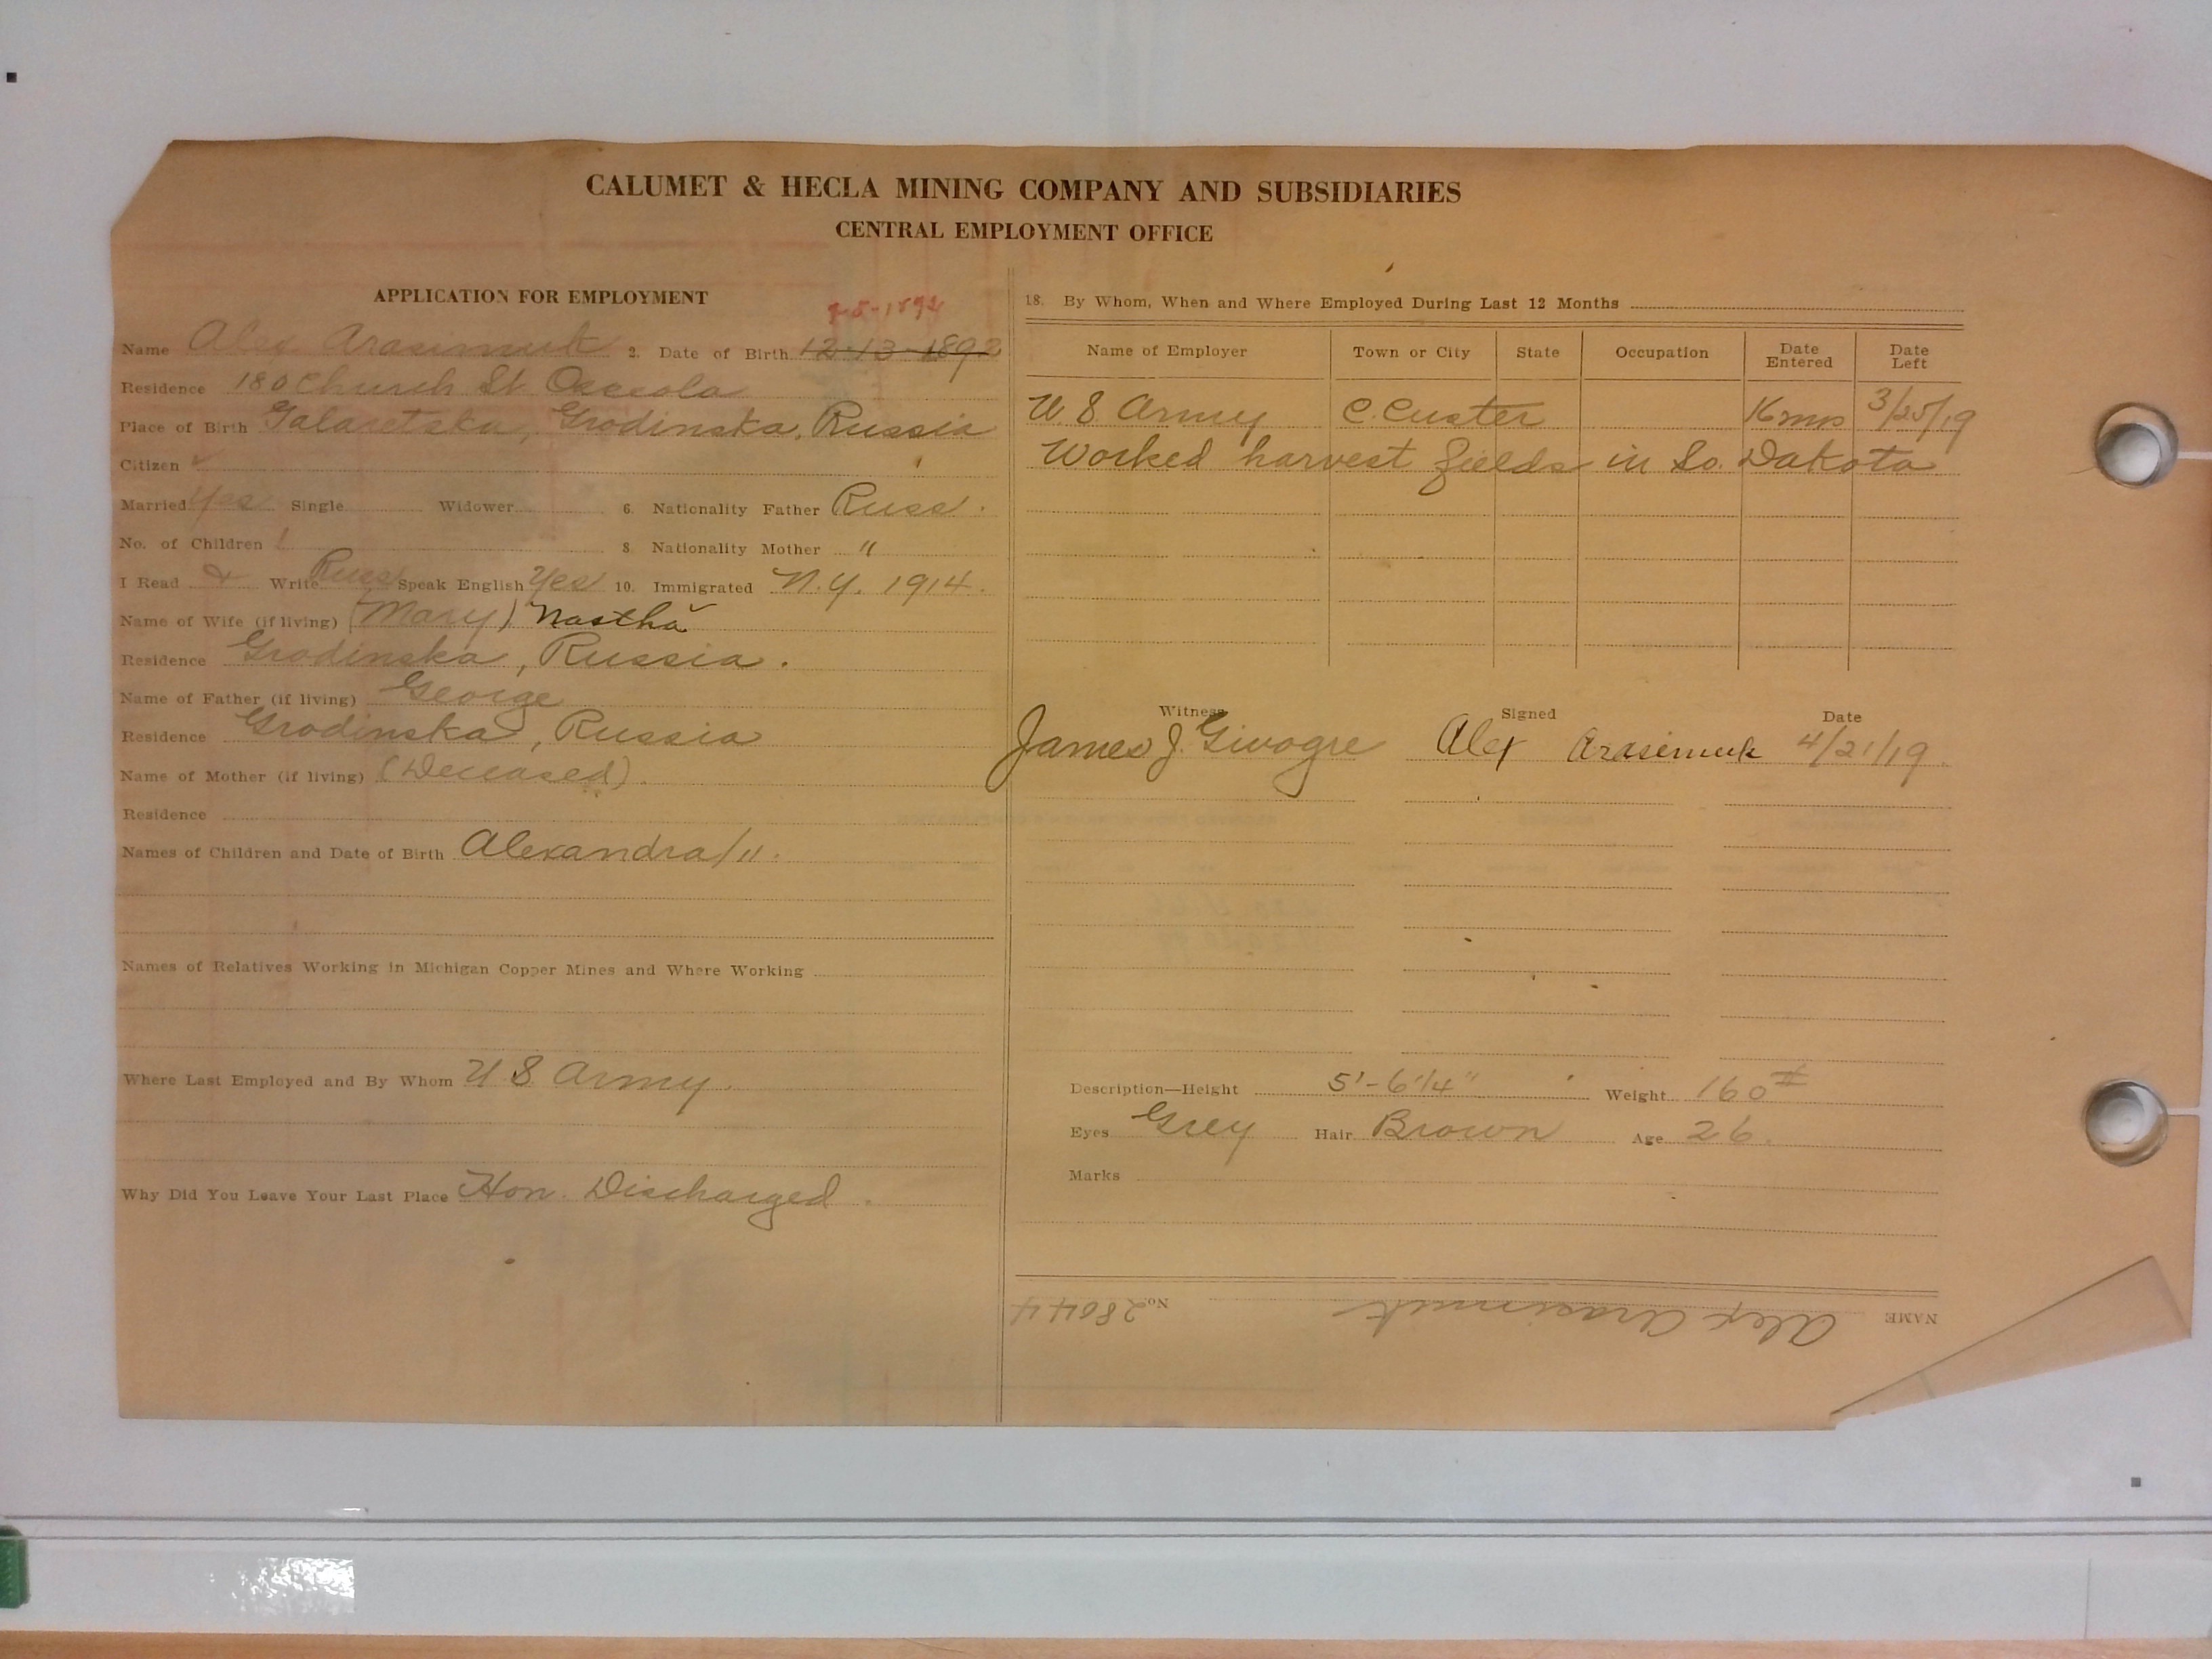 CALUMET & HECLA MINING COMPANY AND SUBSIDIARIES
CENTRAL EMPLOYMENT OFFICE
APPLICATION FOR EMPLOYMENT
Name Alex Arasimuk 2. Date of Birth 12-13-1892
Residence 180 Church St. Osceola
Place of Birth Galaretska, Grodinska, Russia
Citizen
Married Yes Single Widower 6. Nationality Father Russ.
No. of Children 1 8. Nationality Mother "
I Read & Write Russ Speak English Yes 10. Immigrated N.Y. 1914.
Name of Wife (if living) (Mary) Nastha
Residence Grodinska, Russia.
Name of Father (if living) George
Residence Grodinska, Russia
Name of Mother (if living) (Deceased).
Residence
Names of Children and Date of Birth Alexandra/11.
Names of Relatives Working in Michigan Copper Mines and Where Working
Where Last Employed and By Whom U S Army.
Why Did You Leave Your Last Place Hon. Discharged.
18. By Whom, When and Where Employed During Last 12 Months
Name of Employer Town or City State Occupation Date Entered Date Left
U.S. Army C. Custer 3/25/19
Worked harvest fields in So. Dakota
Witness Signed Date
James J. Alex Arasimuk 4/21/19.
Description—Height 5'-6 1/4" Weight 160#
Eyes Grey Hair Brown Age 26.
Marks
NAME Alex Arasimuk No. 28044